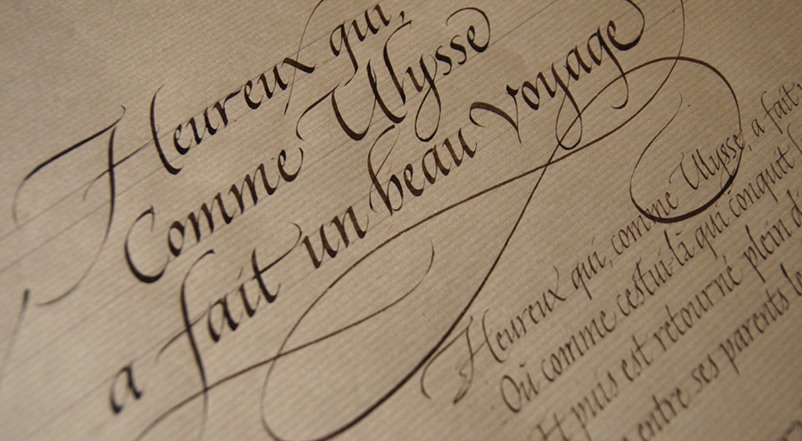 Heureux qui,
Comme Ulysse
a fait un beau voyage
Heureux qui, comme Ulysse, a fait
Où comme cestui-là qui conquit
Et puis est retourné, plein
entre ses parents le